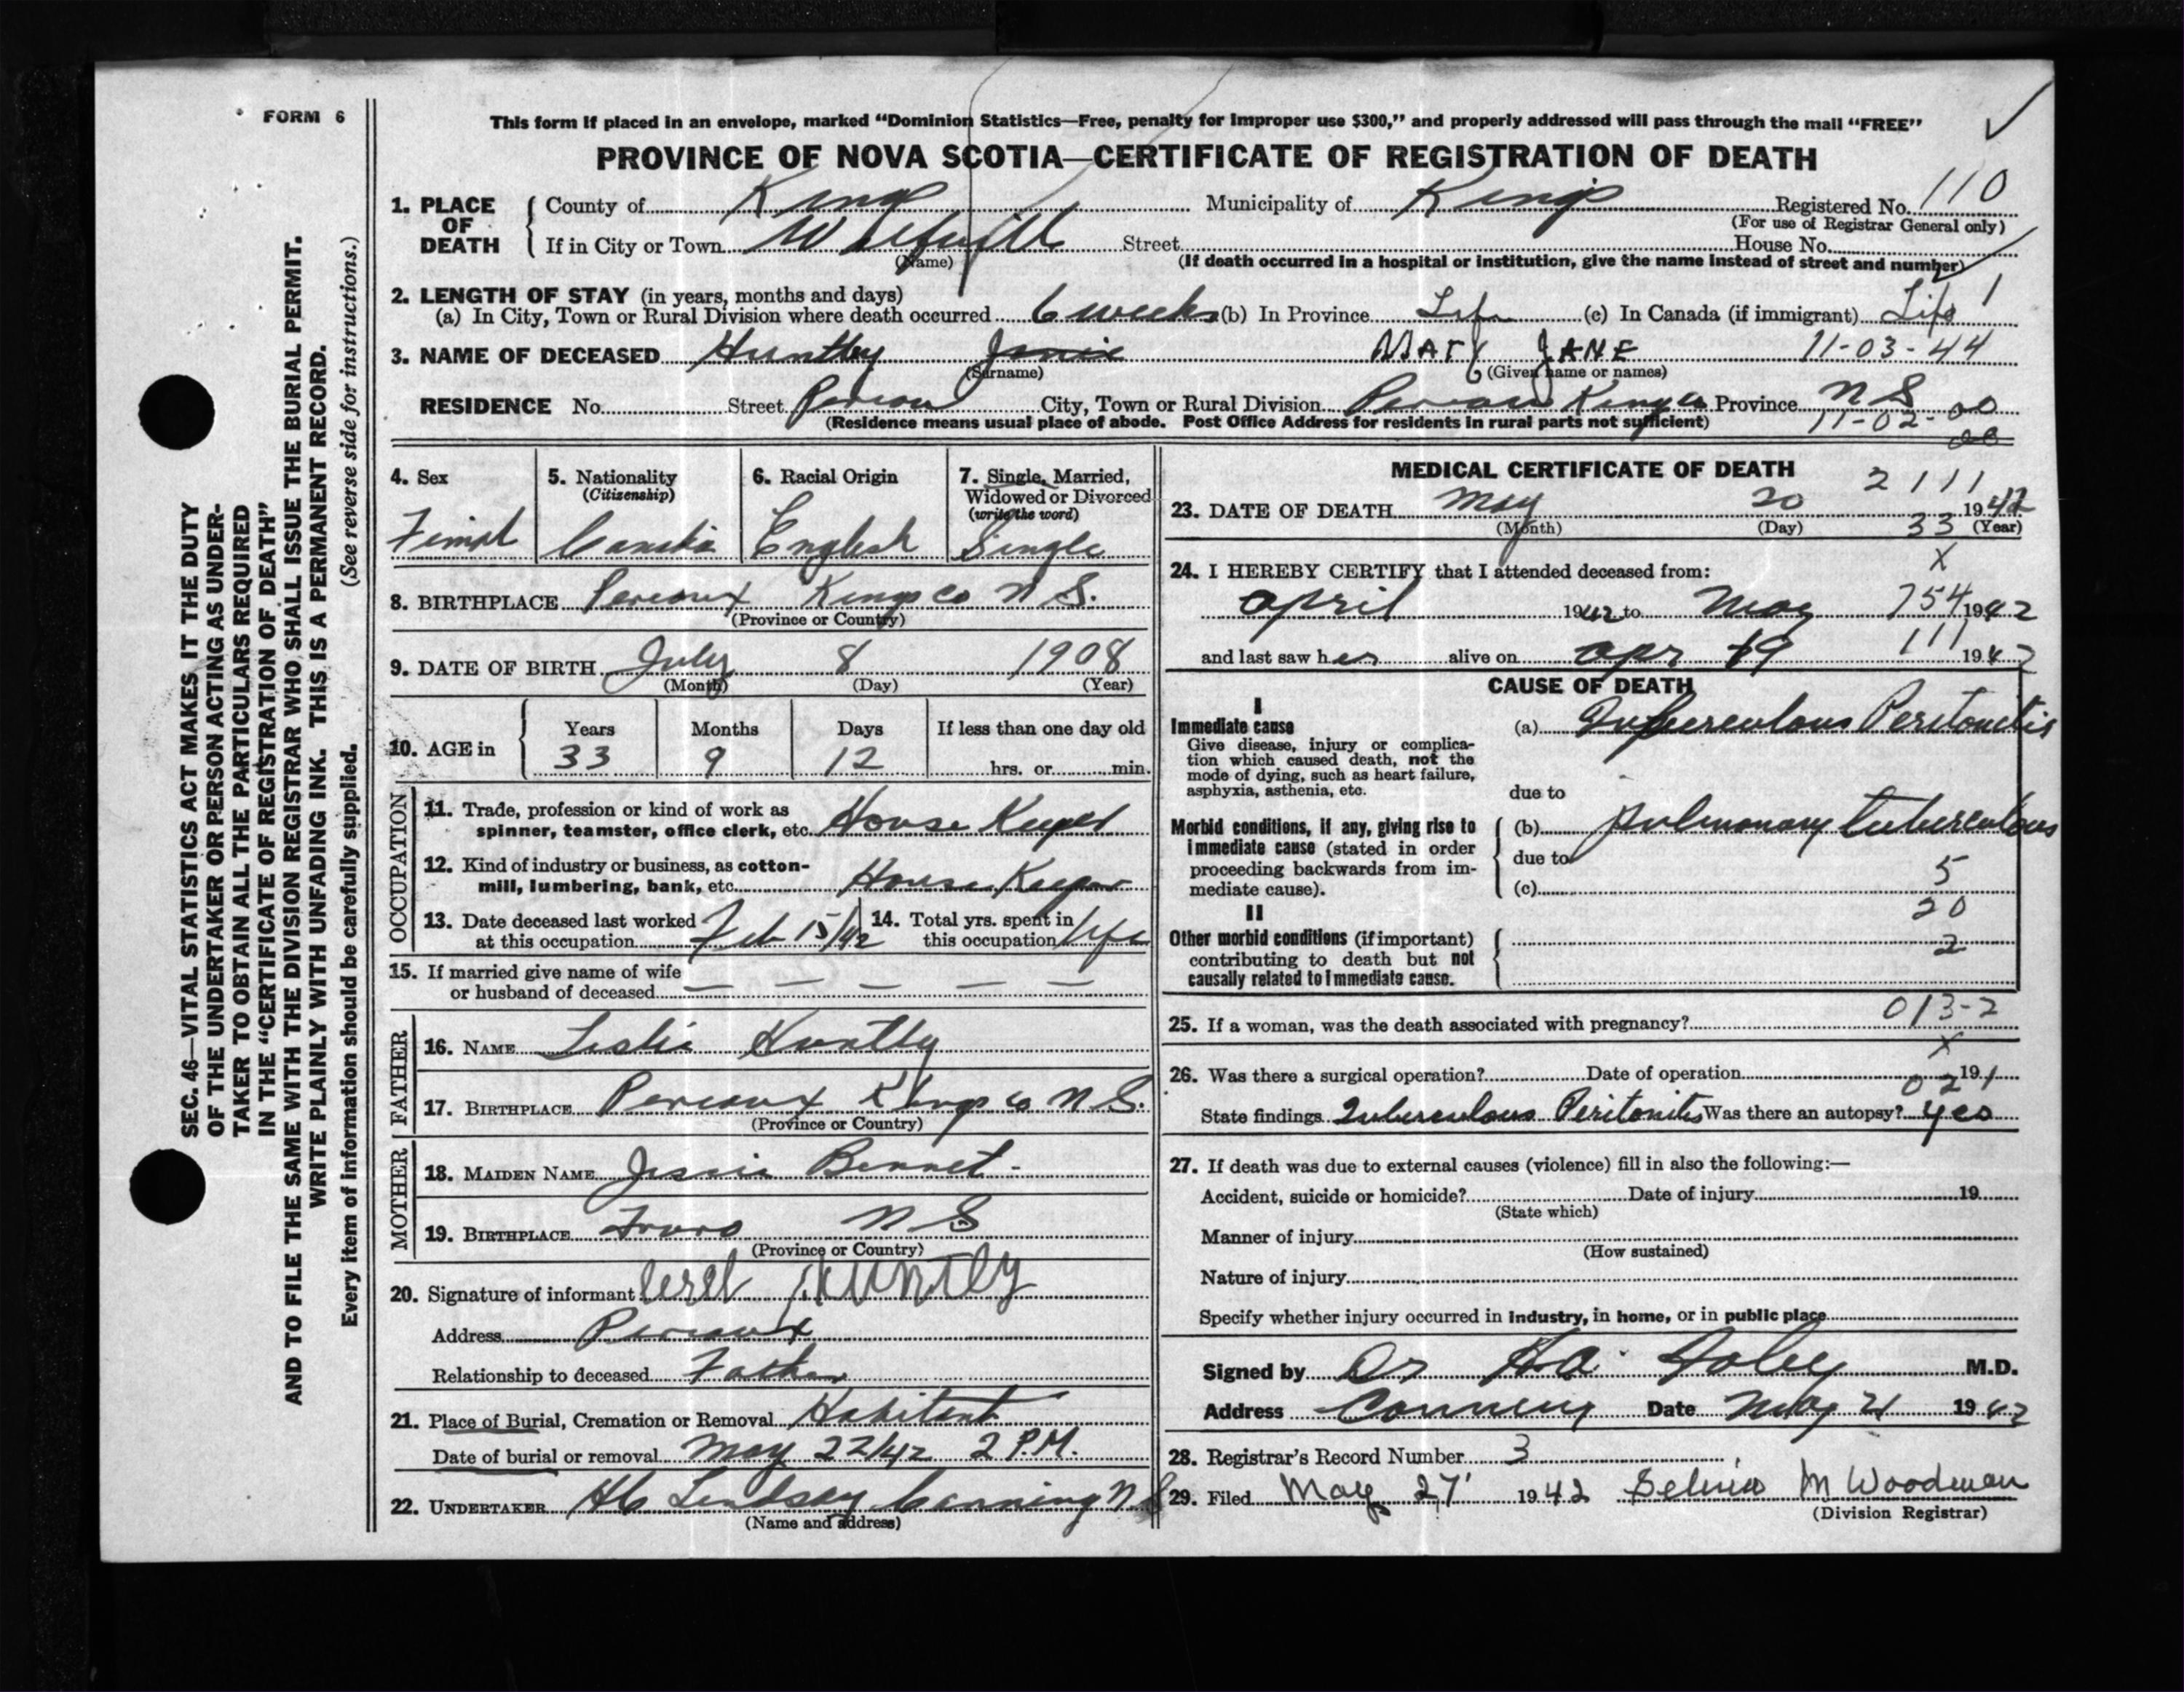 FORM 6
This form if placed in an envelope, marked "Dominion Statistics—Free, penalty for improper use $300," and properly addressed will pass through the mail "FREE"
PROVINCE OF NOVA SCOTIA—CERTIFICATE OF REGISTRATION OF DEATH
1. PLACE OF DEATH County of Kings Municipality of Kings Registered No. 110
(For use of Registrar General only)
If in City or Town Street House No.
(Name) (If death occurred in a hospital or institution, give the name instead of street and number)
2. LENGTH OF STAY (in years, months and days)
(a) In City, Town or Rural Division where death occurred 6 weeks (b) In Province Life (c) In Canada (if immigrant) Life 1
3. NAME OF DECEASED Huntley MARY JANE 11-03-44
(Surname) (Given name or names)
RESIDENCE No. Street City, Town or Rural Division Kings Co Province N S
(Residence means usual place of abode. Post Office Address for residents in rural parts not sufficient) 11-02-00
4. Sex 5. Nationality (Citizenship) 6. Racial Origin 7. Single, Married, Widowed or Divorced (write the word)
English Single
8. BIRTHPLACE Pereaux Kings Co N S.
(Province or Country)
9. DATE OF BIRTH July 8 1908
(Month) (Day) (Year)
10. AGE in Years Months Days If less than one day old
33 9 12 hrs. or min.
OCCUPATION
11. Trade, profession or kind of work as
spinner, teamster, office clerk, etc. House Keeper
12. Kind of industry or business, as cotton-
mill, lumbering, bank, etc. House Keeper
13. Date deceased last worked at this occupation Feb 15/42 14. Total yrs. spent in this occupation life
15. If married give name of wife
or husband of deceased — — — — —
FATHER
16. NAME Leslie Huntly
17. BIRTHPLACE Pereaux Kings Co N S.
(Province or Country)
MOTHER
18. MAIDEN NAME Jessie Bennet
19. BIRTHPLACE Truro N S
(Province or Country)
20. Signature of informant Huntly
Address Pereaux
Relationship to deceased Father
21. Place of Burial, Cremation or Removal Habitant
Date of burial or removal May 22/42 2 P.M.
22. UNDERTAKER Lindsay Canning N S
(Name and address)
MEDICAL CERTIFICATE OF DEATH
2 111
23. DATE OF DEATH May 20 1942
(Month) (Day) (Year)
33
X
24. I HEREBY CERTIFY that I attended deceased from:
April 1942 to May 754 1942
and last saw her alive on Apr 19 111 1942
CAUSE OF DEATH
I
Immediate cause (a) Tuberculous Peritonitis
Give disease, injury or complica-
tion which caused death, not the
mode of dying, such as heart failure,
asphyxia, asthenia, etc.
due to
Morbid conditions, if any, giving rise to
immediate cause (stated in order
proceeding backwards from im-
mediate cause).
(b) Pulmonary tuberculous
due to
5
(c)
20
II
Other morbid conditions (if important)
contributing to death but not
causally related to immediate cause.
2
013-2
25. If a woman, was the death associated with pregnancy?
X
26. Was there a surgical operation? Date of operation 19
021
State findings Tuberculous Peritonitis Was there an autopsy? yes
27. If death was due to external causes (violence) fill in also the following:—
Accident, suicide or homicide? Date of injury 19
(State which)
Manner of injury
(How sustained)
Nature of injury
Specify whether injury occurred in industry, in home, or in public place
Signed by Dr M.D.
Address Canning Date May 21 1942
28. Registrar's Record Number 3
29. Filed May 27 1942 M Woodman
(Division Registrar)
SEC. 46—VITAL STATISTICS ACT MAKES IT THE DUTY
OF THE UNDERTAKER OR PERSON ACTING AS UNDER-
TAKER TO OBTAIN ALL THE PARTICULARS REQUIRED
IN THE "CERTIFICATE OF REGISTRATION OF DEATH"
AND TO FILE THE SAME WITH THE DIVISION REGISTRAR WHO SHALL ISSUE THE BURIAL PERMIT.
WRITE PLAINLY WITH UNFADING INK. THIS IS A PERMANENT RECORD.
Every item of information should be carefully supplied. (See reverse side for instructions.)